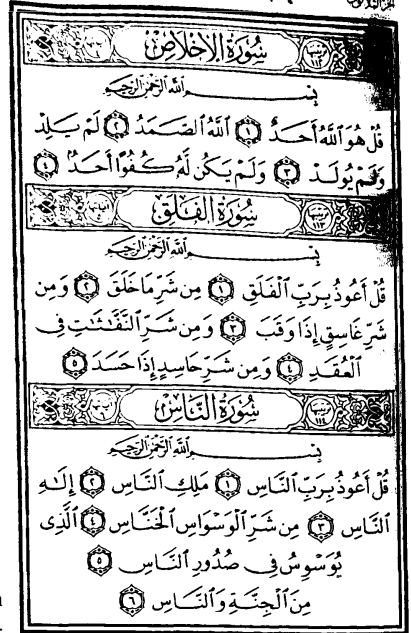 سُورَةُ الإِخْلَاصِ
بِسْمِ اللَّهِ الرَّحْمَٰنِ الرَّحِيمِ
قُلْ هُوَ اللَّهُ أَحَدٌ ١ اللَّهُ الصَّمَدُ ٢ لَمْ يَلِدْ
وَلَمْ يُولَدْ ٣ وَلَمْ يَكُن لَّهُ كُفُوًا أَحَدٌ ٤
سُورَةُ الْفَلَقِ
١١٣
بِسْمِ اللَّهِ الرَّحْمَٰنِ الرَّحِيمِ
قُلْ أَعُوذُ بِرَبِّ الْفَلَقِ ١ مِن شَرِّ مَا خَلَقَ ٢ وَمِن
شَرِّ غَاسِقٍ إِذَا وَقَبَ ٣ وَمِن شَرِّ النَّفَّاثَاتِ فِي
الْعُقَدِ ٤ وَمِن شَرِّ حَاسِدٍ إِذَا حَسَدَ ٥
سُورَةُ النَّاسِ
١١٤
بِسْمِ اللَّهِ الرَّحْمَٰنِ الرَّحِيمِ
قُلْ أَعُوذُ بِرَبِّ النَّاسِ ١ مَلِكِ النَّاسِ ٢ إِلَٰهِ
النَّاسِ ٣ مِن شَرِّ الْوَسْوَاسِ الْخَنَّاسِ ٤ الَّذِي
يُوَسْوِسُ فِي صُدُورِ النَّاسِ ٥
مِنَ الْجِنَّةِ وَالنَّاسِ ٦